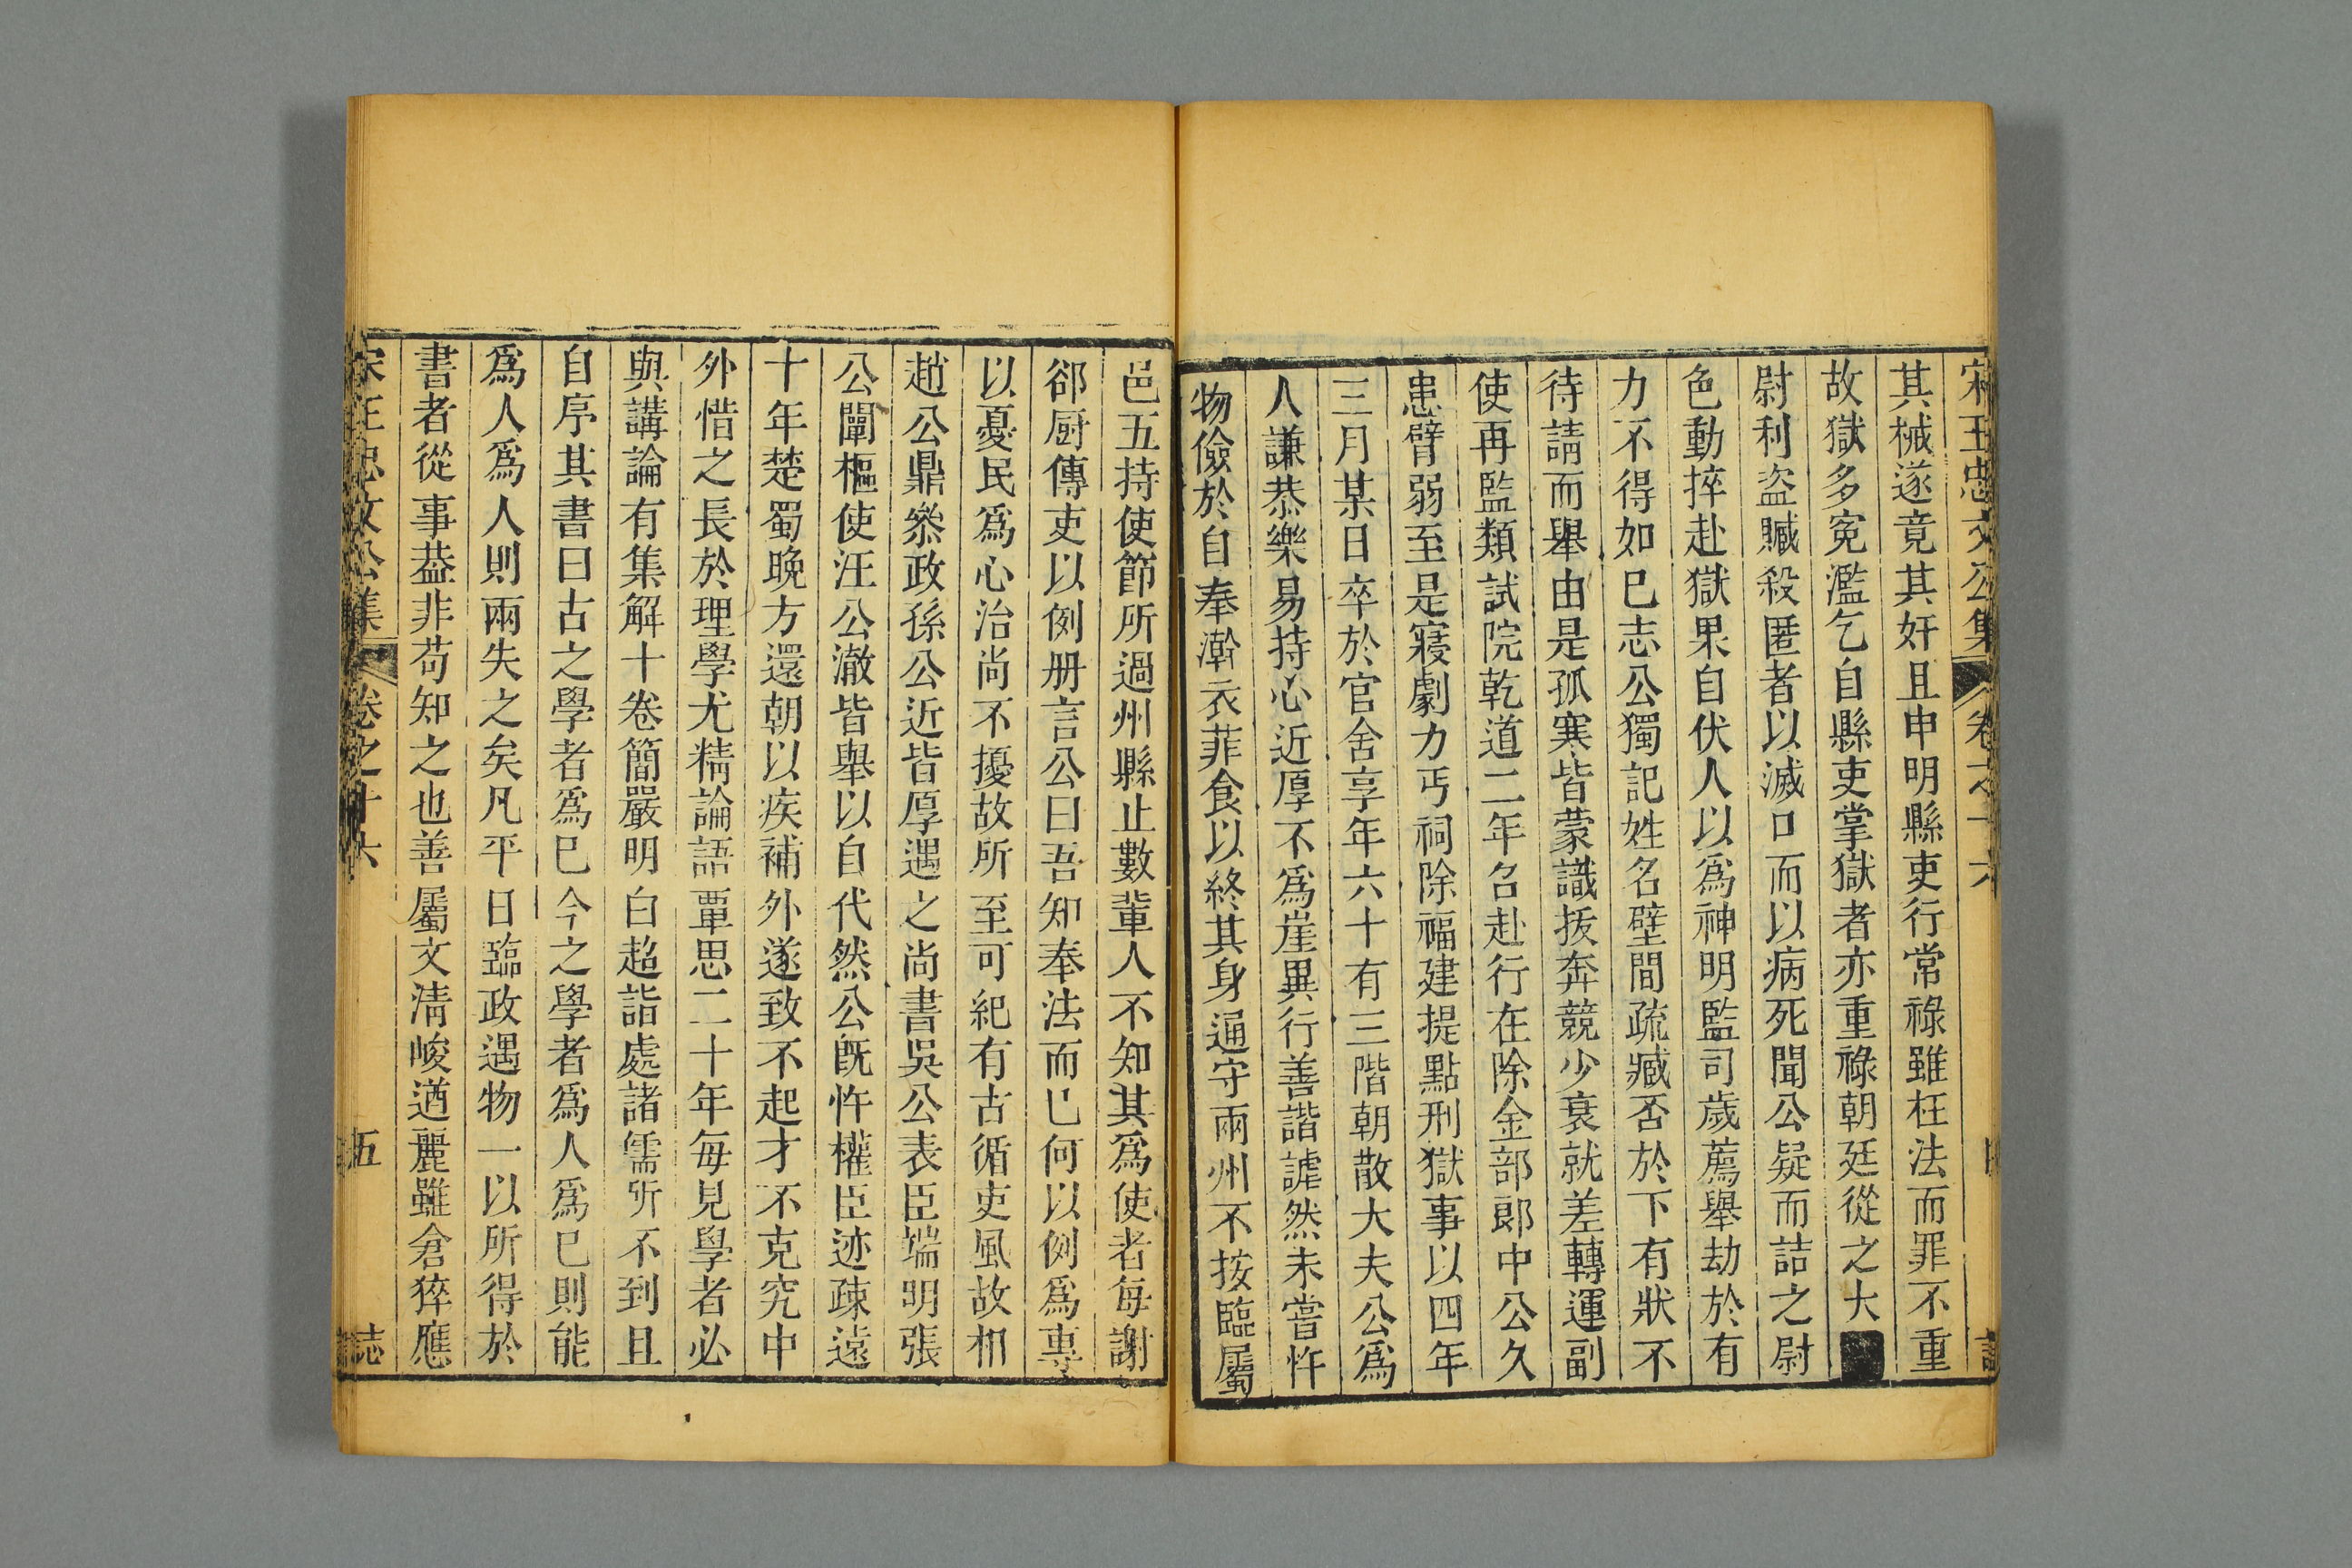 宋王忠文公集 卷之十六
其械遂竟其奸且申明縣吏行常祿雖枉法而罪不重
故獄多寃濫乞自縣吏掌獄者亦重祿朝廷從之大
尉利盜贓殺匿者以滅口而以病死聞公疑而詰之尉
色動捽赴獄果自伏人以爲神明監司歲薦舉劫於有
力不得如巳志公獨記姓名壁間疏臧否於下有狀不
待請而舉由是孤寒皆蒙識拔奔競少衰就差轉運副
使再監類試院乾道二年召赴行在除金部郞中公久
患臂弱至是寢劇力丐祠除福建提點刑獄事以四年
三月某日卒於官舍享年六十有三階朝散大夫公爲
人謙恭樂易持心近厚不爲崖異行善諧謔然未嘗忤
物儉於自奉澣衣菲食以終其身通守兩州不按臨屬
邑五持使節所過州縣止數輩人不知其爲使者每謝
郤厨傳吏以例册言公曰吾知奉法而巳何以例爲專
以憂民爲心治尚不擾故所至可紀有古循吏風故相
趙公鼎叅政孫公近皆厚遇之尚書吳公表臣端明張
公闡樞使汪公澈皆舉以自代然公旣忤權臣迹疎遠
十年楚蜀晚方還朝以疾補外遂致不起才不克究中
外惜之長於理學尤精論語覃思二十年每見學者必
與講論有集解十卷簡嚴明白超詣處諸儒所不到且
自序其書曰古之學者爲巳今之學者爲人爲巳則能
爲人爲人則兩失之矣凡平日臨政遇物一以所得於
書者從事葢非苟知之也善屬文淸峻遒麗雖倉猝應
宋王忠文公集 卷之十六 五 誌